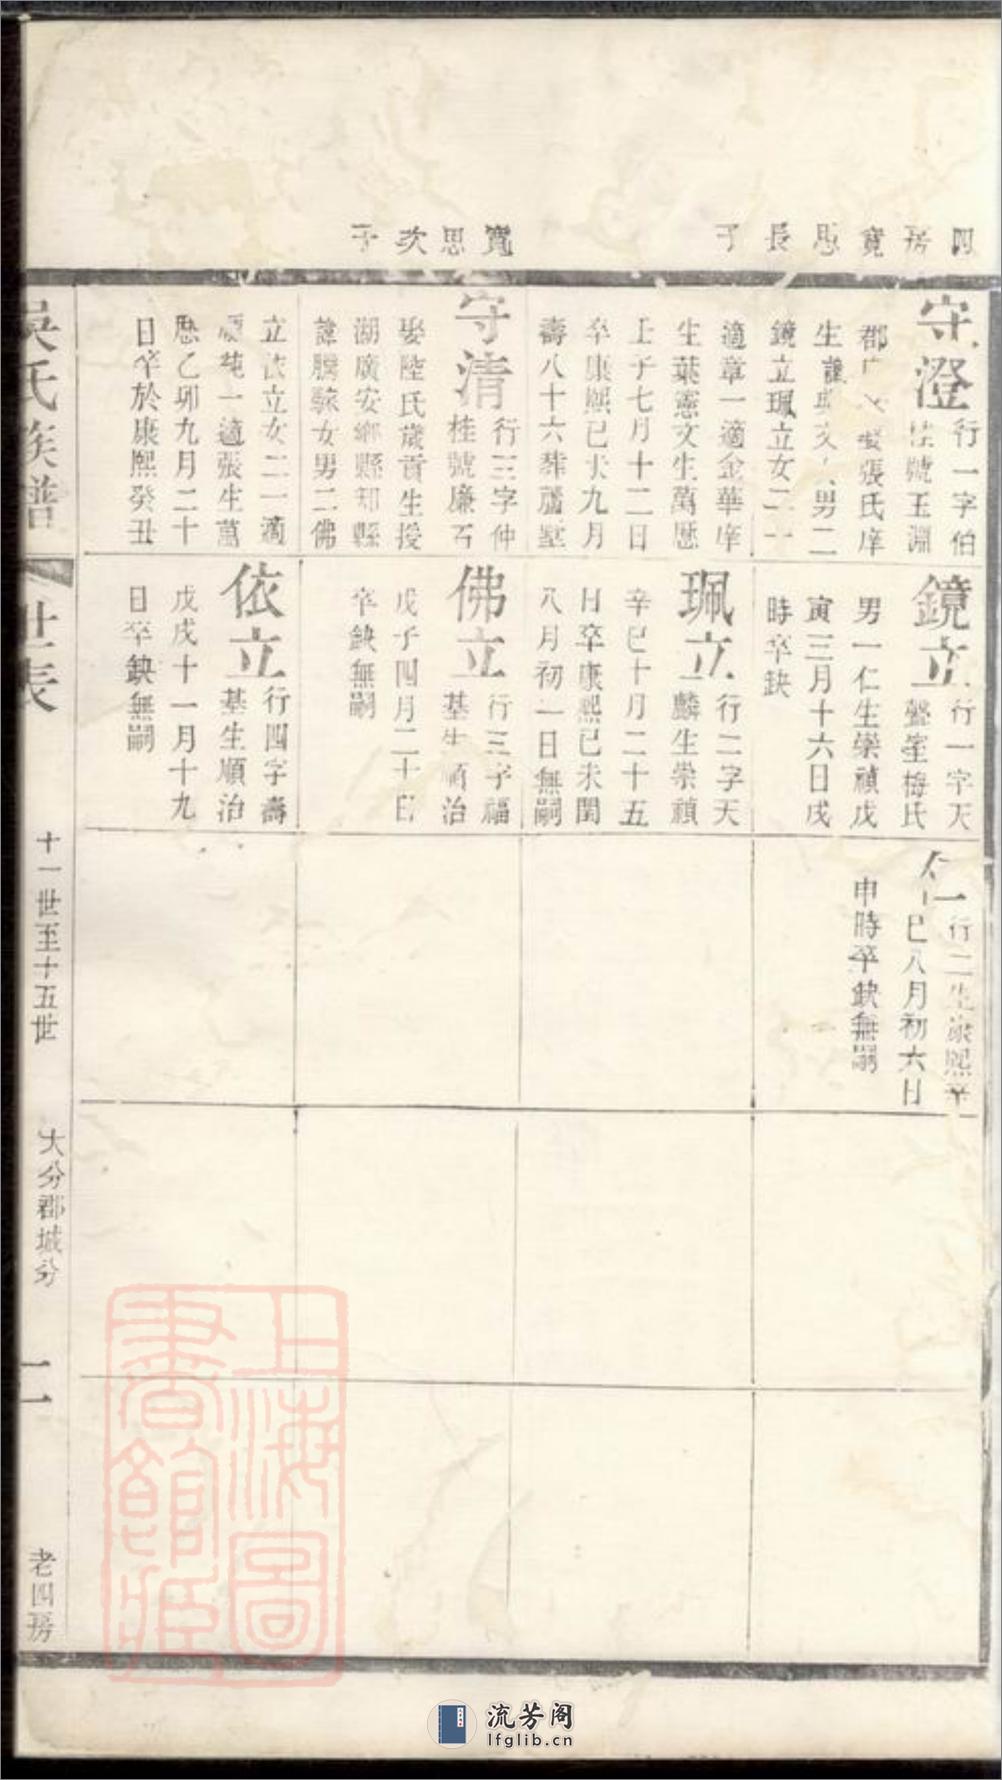 四房寬思長子
寬思次子
守澄
行一字伯
號玉淵
郡
張氏庠
生
男二
鏡立珮立女二一
適章一適金華庠
生葉憲文生萬歷
壬子七月十二日
卒康熙己未九月
壽八十六葬蘆墅
守清
行三字仲
桂號廉石
娶陸氏歲貢生授
湖廣安鄉縣知縣
諱騰
女男二佛
立依立女二一適
純一適張生萬
歷乙卯九月二十
日卒於康熙癸丑
鏡立
行一字天
聲室梅氏
男一仁生崇禎戊
寅三月十六日戌
時卒缺
珮立
行二字天
麟生崇禎
辛巳十月二十五
日卒康熙己未閏
八月初一日無嗣
佛立
行三字福
基生順治
戊子四月二十日
卒缺無嗣
依立
行四字壽
基生順治
戊戌十一月十九
日卒缺無嗣
行二生康熙辛
巳八月初六日
申時卒缺無嗣
吳氏族譜
世表
十一世至十五世
大分郡城分
二
老四房
上海圖書館藏
流芳阁
lfglib.cn